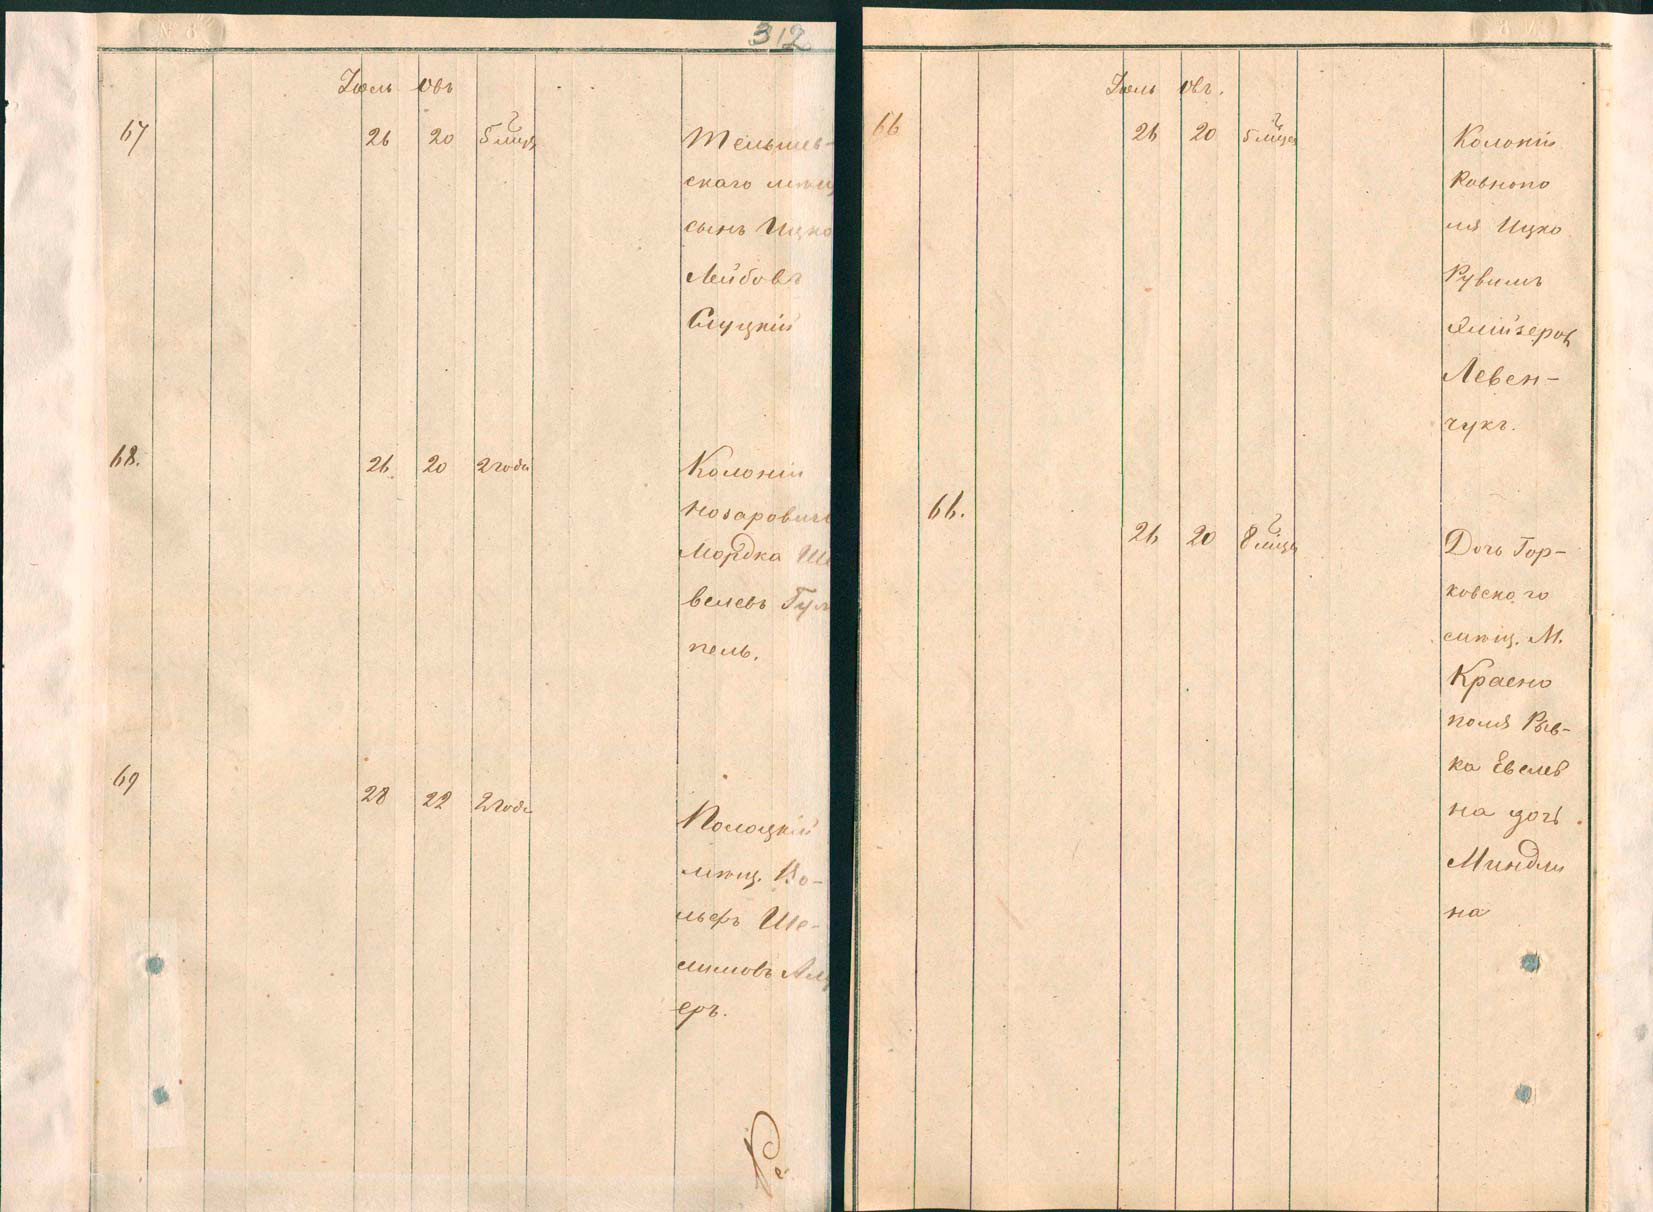 312
Іюль Овъ
67 26 20 5 мцв
Тельшев-
скаго мѣщ
сынъ Ицко
Лейбовъ
Слуцкій
68. 26 20 2 года
Колоніи
Мордка Ше
велевъ
пель.
69 28 22 2 года
Полоцкій
мѣщ. Во-
льфъ Ше-
еръ.
Іюль Овъ.
66 26 20 5 мцв
Колоніи
Ровнопо
ля Ицко
Рувимъ
Левен-
чукъ.
66. 26 20 8 мцв
Дочь Гор-
ковского
мѣщ. М.
Красно
поля Рыв-
ка Евелев
на дочь
Миндли
на